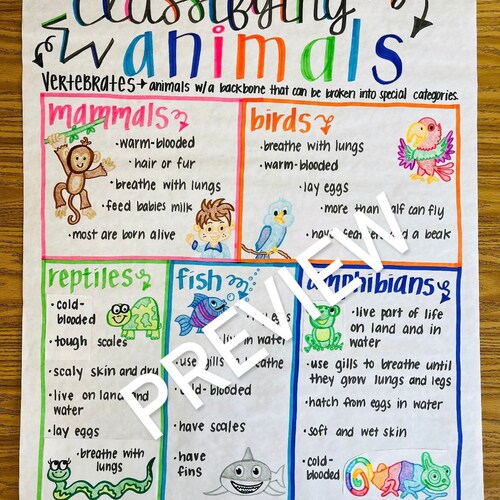 classifying
animals
vertebrates → animals w/a backbone that can be broken into special categories.
mammals
• warm-blooded
• hair or fur
• breathe with lungs
• feed babies milk
• most are born alive
birds
• breathe with lungs
• warm-blooded
• lay eggs
• more than half can fly
• have feathers and a beak
reptiles
• cold-
blooded
• tough scales
• scaly skin and dry
• live on land and
water
• lay eggs
• breathe with
lungs
fish
eggs
live in water
• use gills to breathe
• cold-blooded
• have scales
• have
fins
amphibians
• live part of life
on land and in
water
• use gills to breathe until
they grow lungs and legs
• hatch from eggs in water
• soft and wet skin
• cold-
blooded
PREVIEW